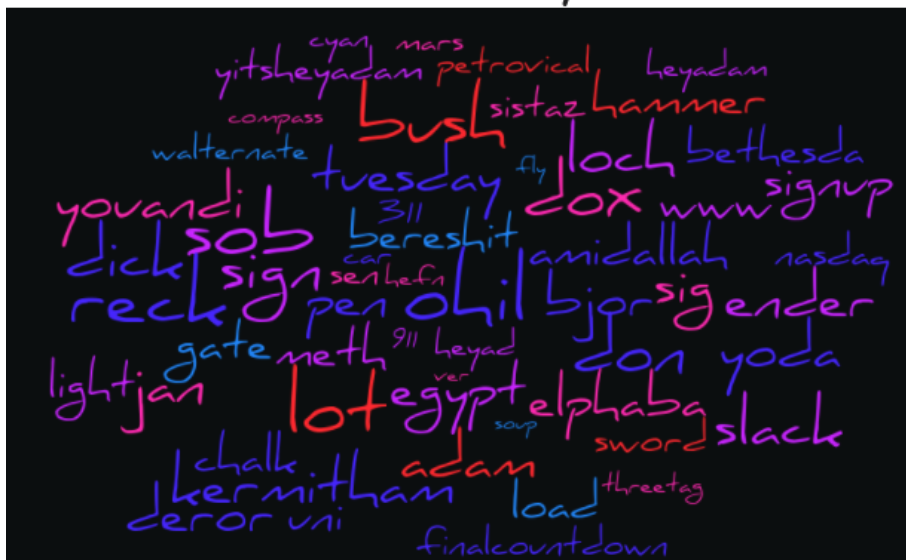 cyan mars
yitsheyadam petrovical heyadam
compass bush sistaz hammer
walternate tuesday fly loch bethesda
youandi 311 dox www signup
dick sob bereshit amidallah nasdaq
sign car senhefn
reck pen ohil bjor sig ender
gate meth 911 heyad don yoda
light jan lot ver egypt elphaba
soup sword slack
chalk adam
kermitham load threetag
deror uni
finalcountdown